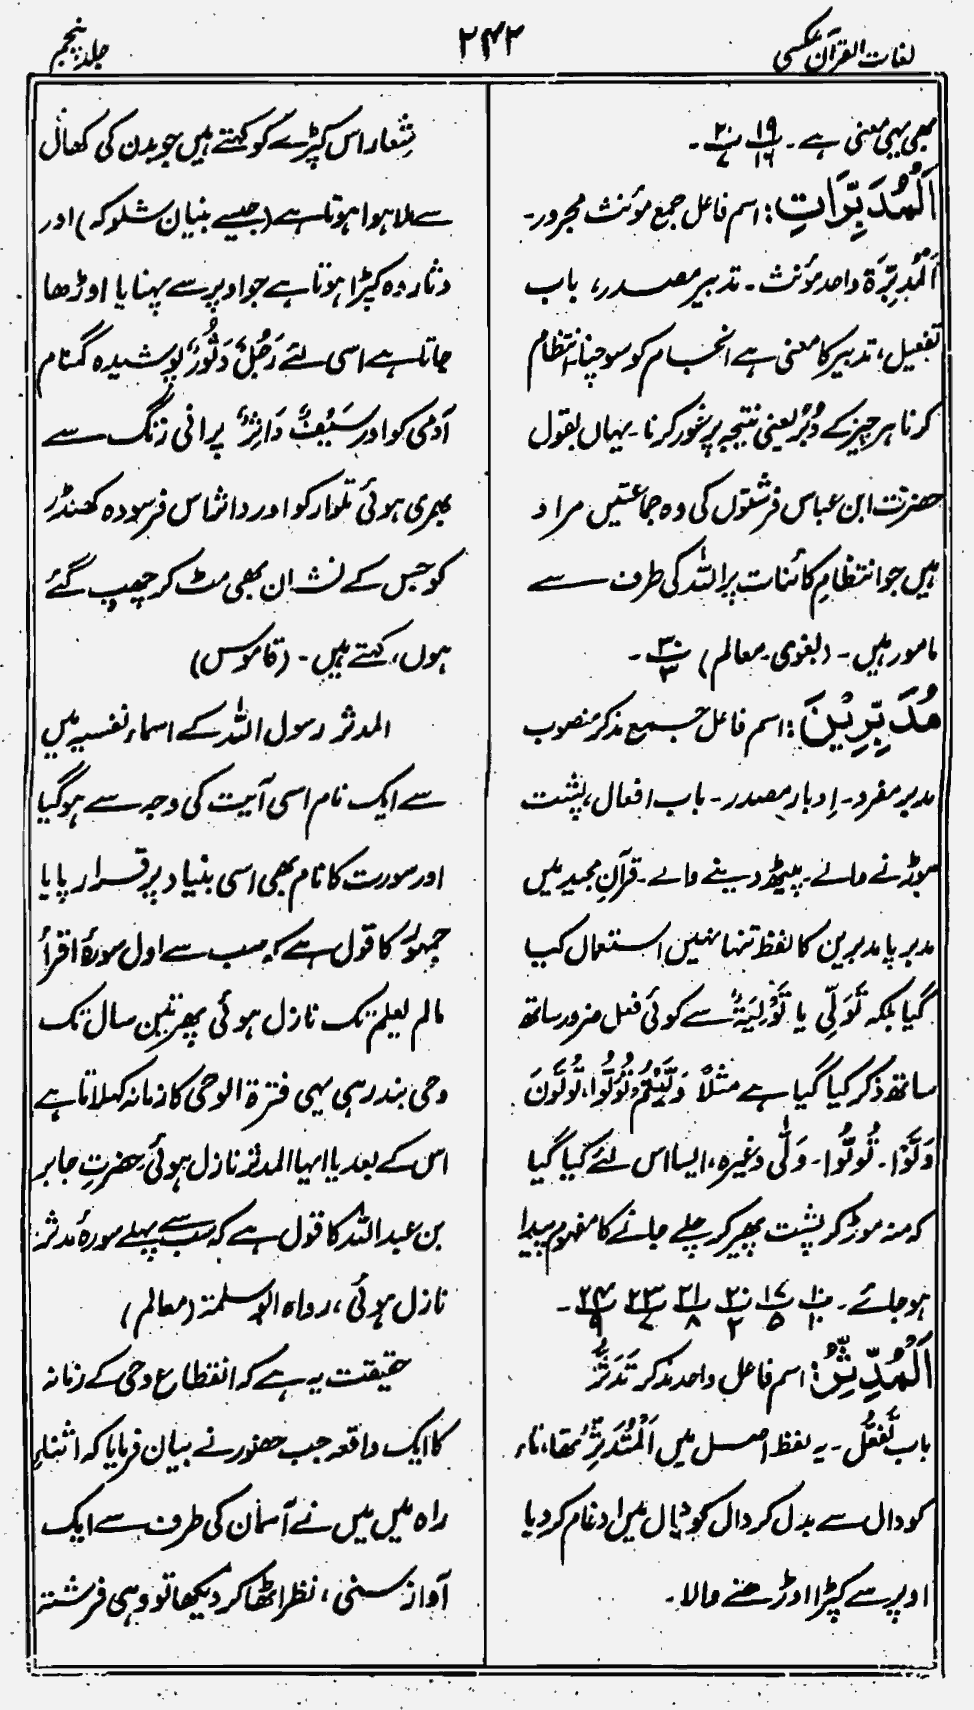 لغات القرآن عکسی
۲۴۲
جلد پنجم
بھی یہی معنی ہے۔ پ۱۹/۱۶ پ۲۰/۷۔
اَلْمُدَبِّرَاتِ: اسم فاعل جمع مؤنث مجرور۔
اَلْمُدَبِّرَۃ واحد مؤنث۔ تدبیر مصدر، باب
تفعیل، تدبیر کا معنی ہے انجام کو سوچنا، انتظام
کرنا ہر چیز کے دُبُر یعنی نتیجہ پر غور کرنا۔ یہاں بقول
حضرت ابن عباس فرشتوں کی وہ جماعتیں مراد
ہیں جو انتظامِ کائنات پر اللہ کی طرف سے
مامور ہیں۔ (بغوی۔ معالم) پ۳۰/۳۔
مُدَبِّرِیْنَ: اسم فاعل جمع مذکر منصوب
مدبر مفرد۔ اِدبار مصدر۔ باب افعال، پشت
موڑنے والے۔ پیٹھ دینے والے۔ قرآن مجید میں
مدبر یا مدبرین کا لفظ تنہا نہیں استعمال کیا
گیا بلکہ تَوَلِّی یا تَوْلِیَۃٌ سے کوئی فعل ضرور ساتھ
ساتھ ذکر کیا گیا ہے مثلاً وَلَّیْتُمْ، تُوَلُّوا، تُوَلُّونَ
وَلَّوْا۔ تُوَلُّوا۔ وَلّٰی وغیرہ، ایسا اس لئے کیا گیا
کہ منہ موڑ کر پشت پھیر کر چلے جانے کا مفہوم پیدا
ہو جائے۔ پ۱۰/۱۰ پ۱۷/۵ پ۲۰/۲ پ۲۱/۸ پ۲۳/۷ پ۲۴/۹۔
اَلْمُدَّثِّرُ: اسم فاعل واحد مذکر تَدَثُّرٌ
باب تَفَعُّل۔ یہ لفظ اصل میں اَلْمُتَدَثِّرُ تھا، تاء
کو دال سے بدل کر دال کو دال میں ادغام کر دیا
اوپر سے کپڑا اوڑھنے والا۔
شِعار اس کپڑے کو کہتے ہیں جو بدن کی کھال
سے ملا ہوا ہوتا ہے (جیسے بنیان شلوکہ) اور
دثار وہ کپڑا ہوتا ہے جو اوپر سے پہنایا اوڑھا
جاتا ہے اسی لئے رَجُلٌ دَثُوْرٌ پوشیدہ گمنام
آدمی کو اور سَیْفٌ دَاثِرٌ پرانی زنگ سے
بھری ہوئی تلوار کو اور داثراس فرسودہ کھنڈر
کو جس کے نشان بھی مٹ کر چھپ گئے
ہوں، کہتے ہیں۔ (قاموس)
المدثر رسول اللہ کے اسماء نفسیہ میں
سے ایک نام اسی آیت کی وجہ سے ہو گیا
اور سورت کا نام بھی اسی بنیاد پر قرار پایا
جمہور کا قول ہے کہ سب سے اول سورۂ اقرأ
مالم یعلم تک نازل ہوئی پھر تین سال تک
وحی بند رہی یہی فترۃ الوحی کا زمانہ کہلاتا ہے
اس کے بعد یا ایہا المدثر نازل ہوئی حضرتِ جابر
بن عبداللہ کا قول ہے کہ سب سے پہلے سورۂ مدثر
نازل ہوئی، رواہ ابوسلمۃ (معالم)
حقیقت یہ ہے کہ انقطاع وحی کے زمانہ
کا ایک واقعہ جب حضور نے بیان فرمایا کہ اثنائے
راہ میں میں نے آسمان کی طرف سے ایک
آواز سنی، نظر اٹھا کر دیکھا تو وہی فرشتہ